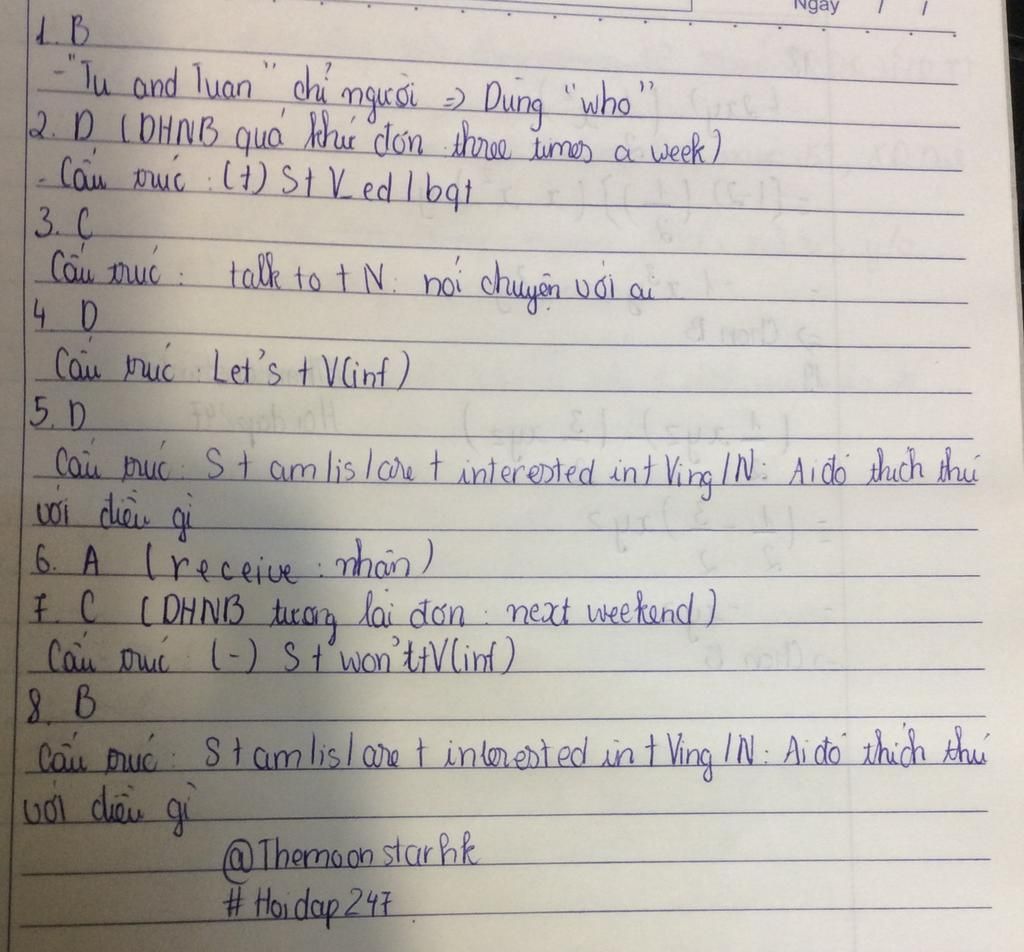 Ngày / /
1. B
- "Tu and Tuan" chỉ người => Dùng "who"
2. D (DHNB quá khứ đơn: three times a week)
- Cấu trúc: (+) S + V_ed / bqt
3. C
Cấu trúc: talk to + N: nói chuyện với ai
4 D
Cấu trúc: Let's + V(inf)
5. D
Cấu trúc: S + am / is / are + interested in + Ving / N: Ai đó thích thú
với điều gì
6. A (receive: nhận)
7. C (DHNB tương lai đơn: next weekend)
Cấu trúc (-) S + won't + V(inf)
8. B
Cấu trúc: S + am / is / are + interested in + Ving / N: Ai đó thích thú
với điều gì
@Themoonstarhk
#Hoidap247